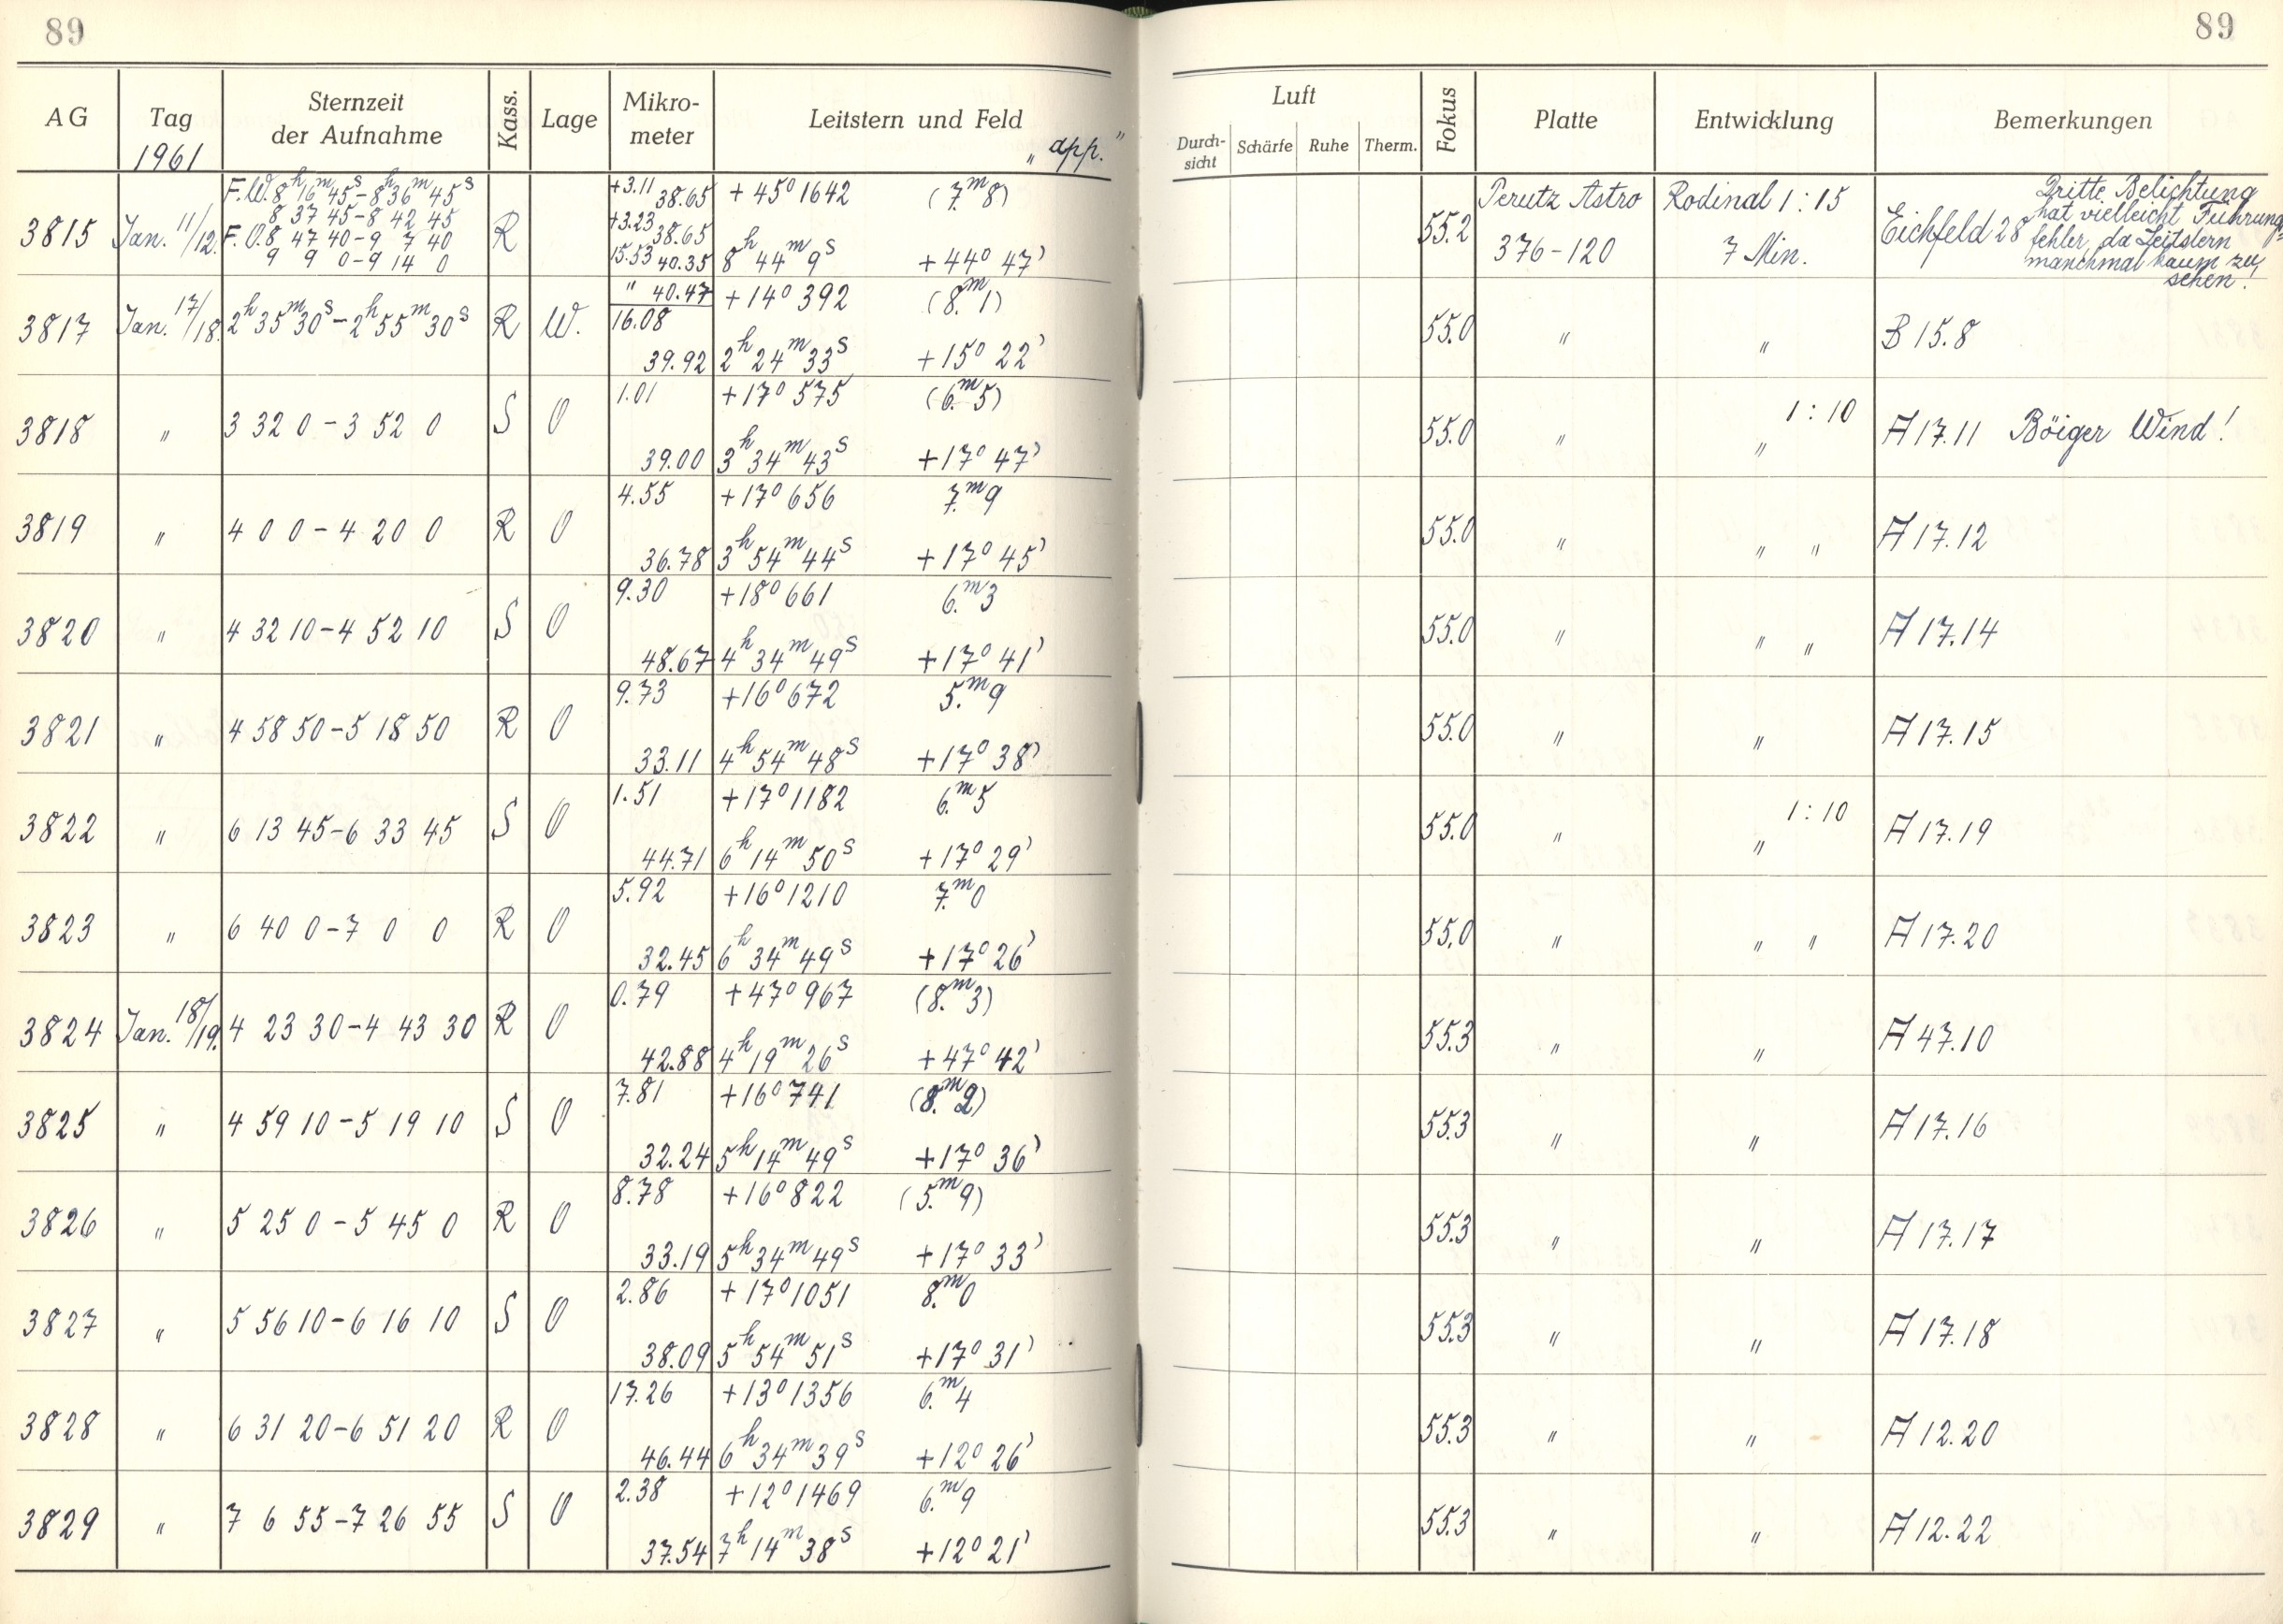 89
89
AG Tag 1961 Sternzeit der Aufnahme Kass. Lage Mikro-meter Leitstern und Feld "app." Luft Durch-sicht Schärfe Ruhe Therm. Fokus Platte Entwicklung Bemerkungen
F.W. 8h 16m 45s – 8h 36m 45s +3.11 38.65 + 45° 1642 (7.m8) Perutz Astro Rodinal 1:15 Dritte Belichtung
8 37 45 – 8 42 45 +3.23 38.65 hat vielleicht Führungs-
3815 Jan. 11/12. F.O. 8 47 40 – 9 7 40 R 55.2 Eichfeld 28 fehler, da Leitstern
9 9 0 – 9 14 0 15.53 40.35 8h 44m 9s +44° 47' 376-120 7 Min. manchmal kaum zu
sehen!
" 40.47 +14° 392 (8.m1)
3817 Jan. 17/18. 2h 35m 30s – 2h 55m 30s R W. 16.08 55.0 " " B 15.8
39.92 2h 24m 33s +15° 22'
1.01 +17° 575 (6.m5) 1:10
3818 " 3 32 0 – 3 52 0 S O 55.0 " " A 17.11 Böiger Wind!
39.00 3h 34m 43s +17° 47'
4.55 +17° 656 7.m9
3819 " 4 0 0 – 4 20 0 R O 55.0 " " " A 17.12
36.78 3h 54m 44s +17° 45'
9.30 +18° 661 6.m3
3820 " 4 32 10 – 4 52 10 S O 55.0 " " " A 17.14
48.67 4h 34m 49s +17° 41'
9.73 +16° 672 5.m9
3821 " 4 58 50 – 5 18 50 R O 55.0 " " A 17.15
33.11 4h 54m 48s +17° 38'
1.51 +17° 1182 6.m5 1:10
3822 " 6 13 45 – 6 33 45 S O 55.0 " " A 17.19
44.71 6h 14m 50s +17° 29'
5.92 +16° 1210 7.m0
3823 " 6 40 0 – 7 0 0 R O 55.0 " " " A 17.20
32.45 6h 34m 49s +17° 26'
0.79 +47° 967 (8.m3)
3824 Jan. 18/19. 4 23 30 – 4 43 30 R O 55.3 " " A 47.10
42.88 4h 19m 26s +47° 42'
7.81 +16° 741 (8.m2)
3825 " 4 59 10 – 5 19 10 S O 55.3 " " A 17.16
32.24 5h 14m 49s +17° 36'
8.78 +16° 822 (5.m9)
3826 " 5 25 0 – 5 45 0 R O 55.3 " " A 17.17
33.19 5h 34m 49s +17° 33'
2.86 +17° 1051 8.m0
3827 " 5 56 10 – 6 16 10 S O 55.3 " " A 17.18
38.09 5h 54m 51s +17° 31'
17.26 +13° 1356 6.m4
3828 " 6 31 20 – 6 51 20 R O 55.3 " " A 12.20
46.44 6h 34m 39s +12° 26'
2.38 +12° 1469 6.m9
3829 " 7 6 55 – 7 26 55 S O 55.3 " " A 12.22
37.54 7h 14m 38s +12° 21'